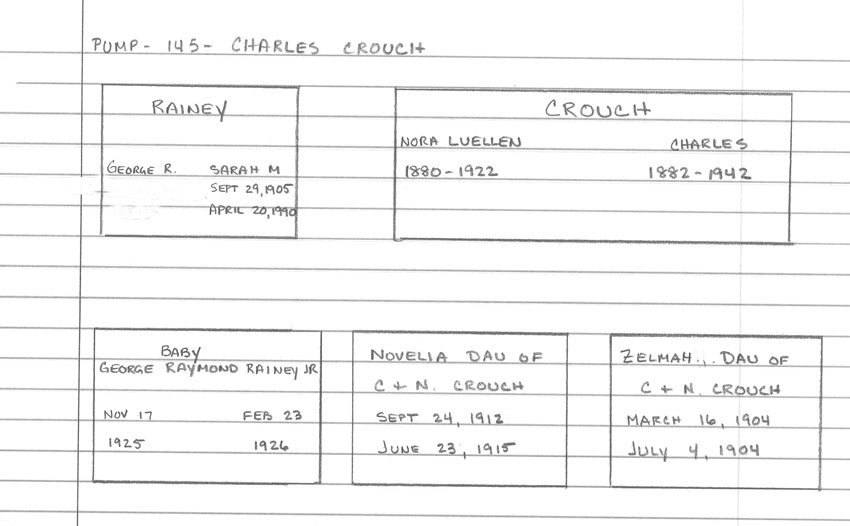 PUMP - 145 - CHARLES CROUCH
RAINEY
GEORGE R. SARAH M
SEPT 29, 1905
APRIL 20, 1990
CROUCH
NORA LUELLEN CHARLES
1880 - 1922 1882 - 1942
BABY
GEORGE RAYMOND RAINEY JR
NOV 17 FEB 23
1925 1926
NOVELIA DAU OF
C + N. CROUCH
SEPT 24, 1912
JUNE 23, 1915
ZELMAH... DAU OF
C + N. CROUCH
MARCH 16, 1904
JULY 4, 1904